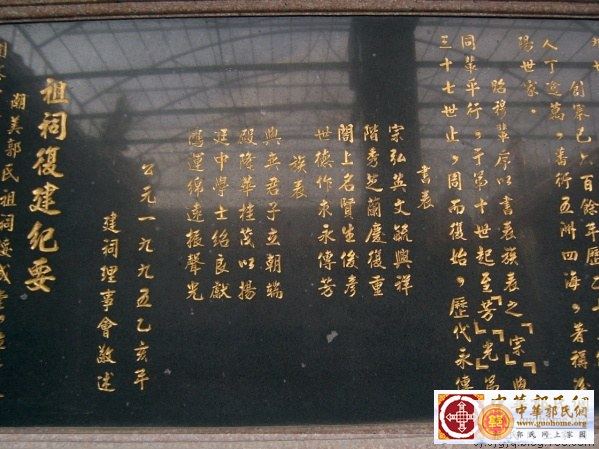 創寨已六百餘年歷
人丁逾萬，書衍五洲四海，著稱
陽世家。
昭穆輩序以書表族表之『宗』
同輩平行，于第十世起至『芳』『光』為
三十七世止，周而復始，歷代永傳
書表
宗弘英文毓興祥
階秀芝蘭慶復重
閣上名賢生俊彥
世德作求永傳芳
族表
興英君子立朝端
殿隆華桂茂以揚
廷中學士紹良猷
應運綿遠振聲光
公元一九九五乙亥年
建祠理事會敬述
祖祠復建紀要
潮美郭氏祖祠
中華郭氏網
www.guohome.org
郭氏网上家园